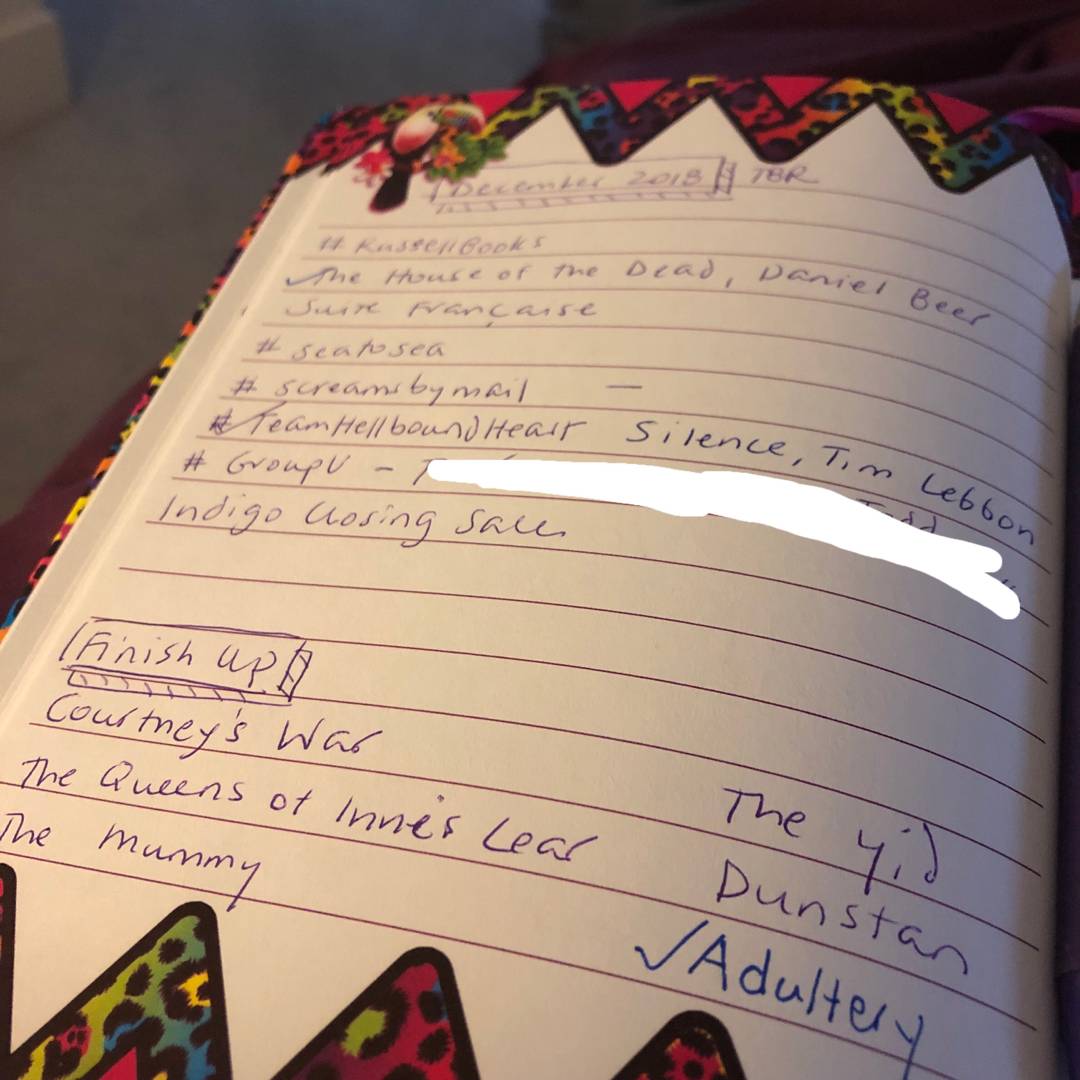 December 2018 TBR
# RussellBooks
✓The House of the Dead, Daniel Beer
Suite Française
# seatosea
# screamsbymail —
#✓TeamHellboundHeart Silence, Tim Lebbon
# GroupU -
Indigo Closing Sale
Finish Up
Courtney's War
The Queens of Innis Lear
The Mummy
The Yid
Dunstan
✓Adultery